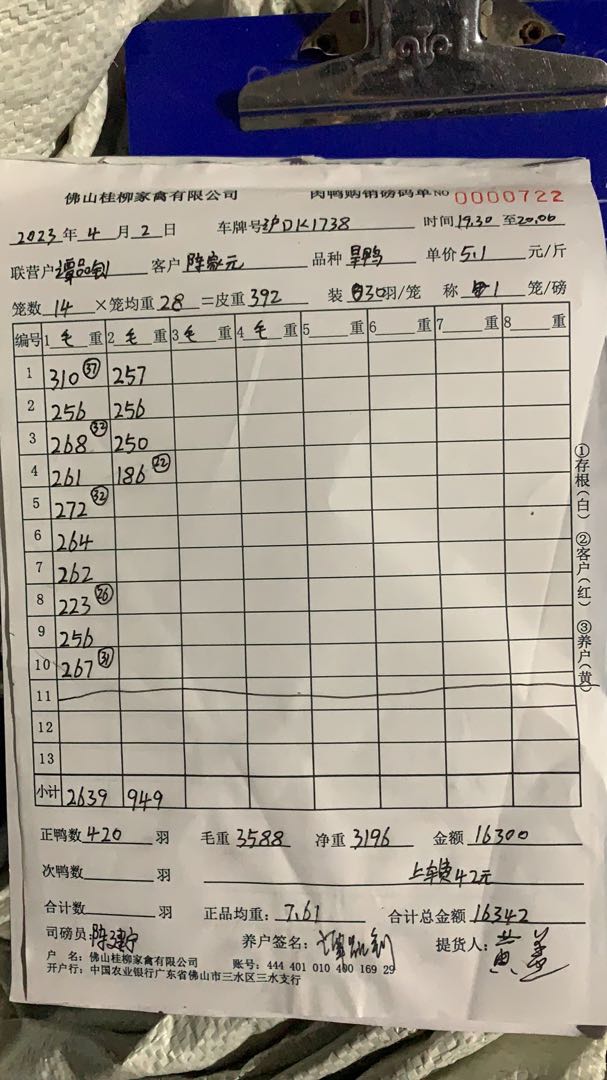 佛山桂柳家禽有限公司 肉鸭购销磅码单 NO 0000722
2023 年 4 月 2 日 车牌号 沪DK1738 时间 19.30 至 20.06
联营户 客户 陈家元 品种 旱鸭 单价 5.1 元/斤
笼数 14 ×笼均重 28 =皮重 392 装 30 羽/笼 称 1 笼/磅
编号 1 毛 重 2 毛 重 3 毛 重 4 毛 重 5 重 6 重 7 重 8 重
1 310 37 257
2 256 256
3 268 32 250
4 261 186 22
5 272 32
6 264
7 262
8 223 26
9 256
10 267 31
11
12
13
小计 2639 949
①存根(白) ②客户(红) ③养户(黄)
正鸭数 420 羽 毛重 3588 净重 3196 金额 16300
次鸭数 羽 上车费42元
合计数 羽 正品均重: 7.61 合计总金额 16342
司磅员: 陈建宁 养户签名: 提货人:
户 名: 佛山桂柳家禽有限公司 账号: 444 401 010 400 169 29
开户行: 中国农业银行广东省佛山市三水区三水支行